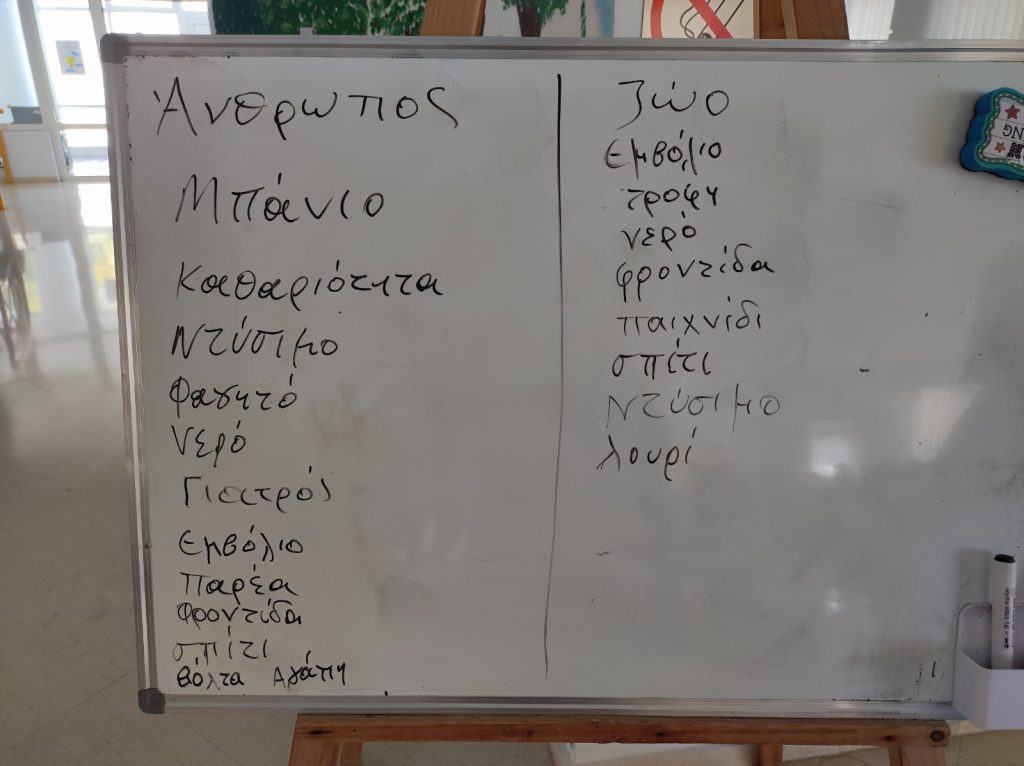 Άνθρωπος
Μπάνιο
Καθαριότητα
Ντύσιμο
Φαγητό
Νερό
Γιατρός
Εμβόλιο
Παρέα
Φροντίδα
σπίτι
Βόλτα Αγάπη
Ζώο
Εμβόλιο
τροφή
νερό
φροντίδα
παιχνίδι
σπίτι
Ντύσιμο
λουρί